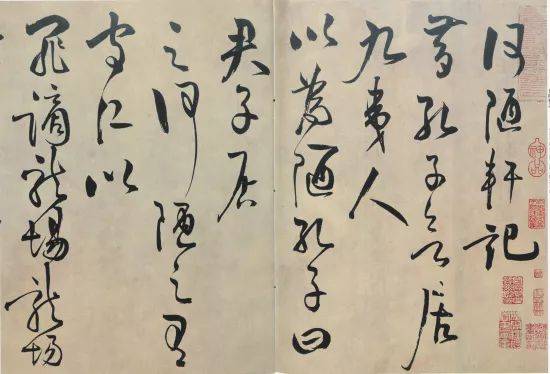 何陋軒記
昔孔子欲居
九夷人
以為陋孔子曰
君子居
之何陋之有
守仁以
罪謫龍場龍場
神品